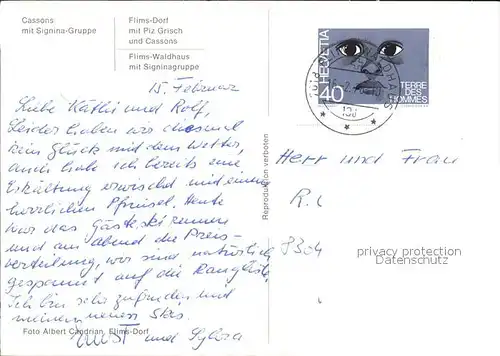 Cassons
mit Signina-Gruppe
Flims-Dorf
mit Piz Grisch
und Cassons
Flims-Waldhaus
mit Signinagruppe
15. Februar
Liebe Käthi und Rolf,
Leider haben wir diesmal
kein Glück mit dem Wetter,
auch habe ich bereits eine
Erkältung erwischt mit einem
herrlichen Pfnüsel. Heute
war das Gästeskirennen
und am abend die Preis-
verteilung, wir sind natürlich
gespannt auf die Rangliste.
Ich bin sehr zufrieden mit
meinen neuen Skis.
Ernst und Sylvia
Foto Albert Candrian, Flims-Dorf
Reproduktion verboten
HELVETIA
40
TERRE
DES
HOMMES
WALDHAUS
Herr und Frau
R.
8304
privacy protection
Datenschutz